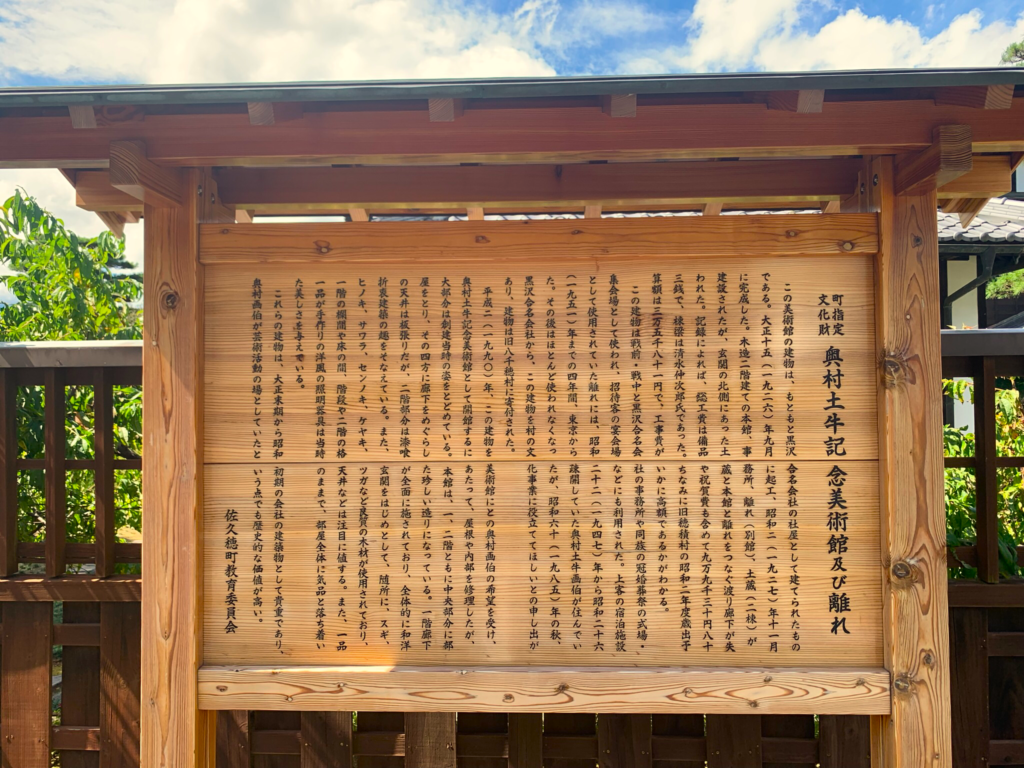 町指定
文化財
奥村土牛記念美術館及び離れ
この美術館の建物は、もともと黒沢合名会社の社屋として建てられたもの
である。大正十五(一九二六)年九月に起工、昭和二(一九二七)年十一月
に完成した。木造二階建ての本館、事務所、離れ(別館)、土蔵(二棟)が
建設されたが、玄関の北側にあった土蔵と本館と離れをつなぐ渡り廊下が失
われた。記録によれば、総工費は備品や祝賀費も含めて九万九千三十円八十
三銭で、棟梁は清水仲次郎氏であった。ちなみに旧穂積村の昭和二年度歳出予
算額は三万五千八十一円で、工事費がいかに高額であるかがわかる。
この建物は戦前・戦中と黒沢合名会社の事務所や同族の冠婚葬祭の式場・
集会場として使われ、招待客の宴会場などにも利用された。上客の宿泊施設
として使用されていた離れには、昭和二十二(一九四七)年から昭和二十六
(一九五一)年までの四年間、東京から疎開していた奥村土牛画伯が住んでい
た。その後はほとんど使われなくなったが、昭和六十(一九八五)年の秋、
黒沢合名会社から、この建物を村の文化事業に役立ててほしいとの申し出が
あり、建物は旧八千穂村に寄付された。
平成二(一九九〇)年、この建物を美術館にとの奥村画伯の希望を受け、
奥村土牛記念美術館として開館するにあたって、屋根や内部を修理したが、
大部分は創建当時の姿をとどめている。本館は、一、二階ともに中央部分に部
屋をとり、その四方に廊下をめぐらした珍しい造りになっている。一階廊下
の天井は板張りだが、二階部分は漆喰が全面に施されており、全体的に和洋
折衷建築の趣をそなえている。また、玄関をはじめとして、随所に、スギ、
ヒノキ、サワラ、センノキ、ケヤキ、ツガなど良質の木材が使用されており、
一階の欄間や床の間、階段や二階の格天井などは注目に値する。また、一品
一品が手作りの洋風の照明器具は当時のままで、部屋全体に気品と落ち着い
た美しさを与えている。
これらの建物は、大正末期から昭和初期の会社の建築物として貴重であり、
奥村画伯が芸術活動の場としていたという点でも歴史的な価値が高い。
佐久穂町教育委員会